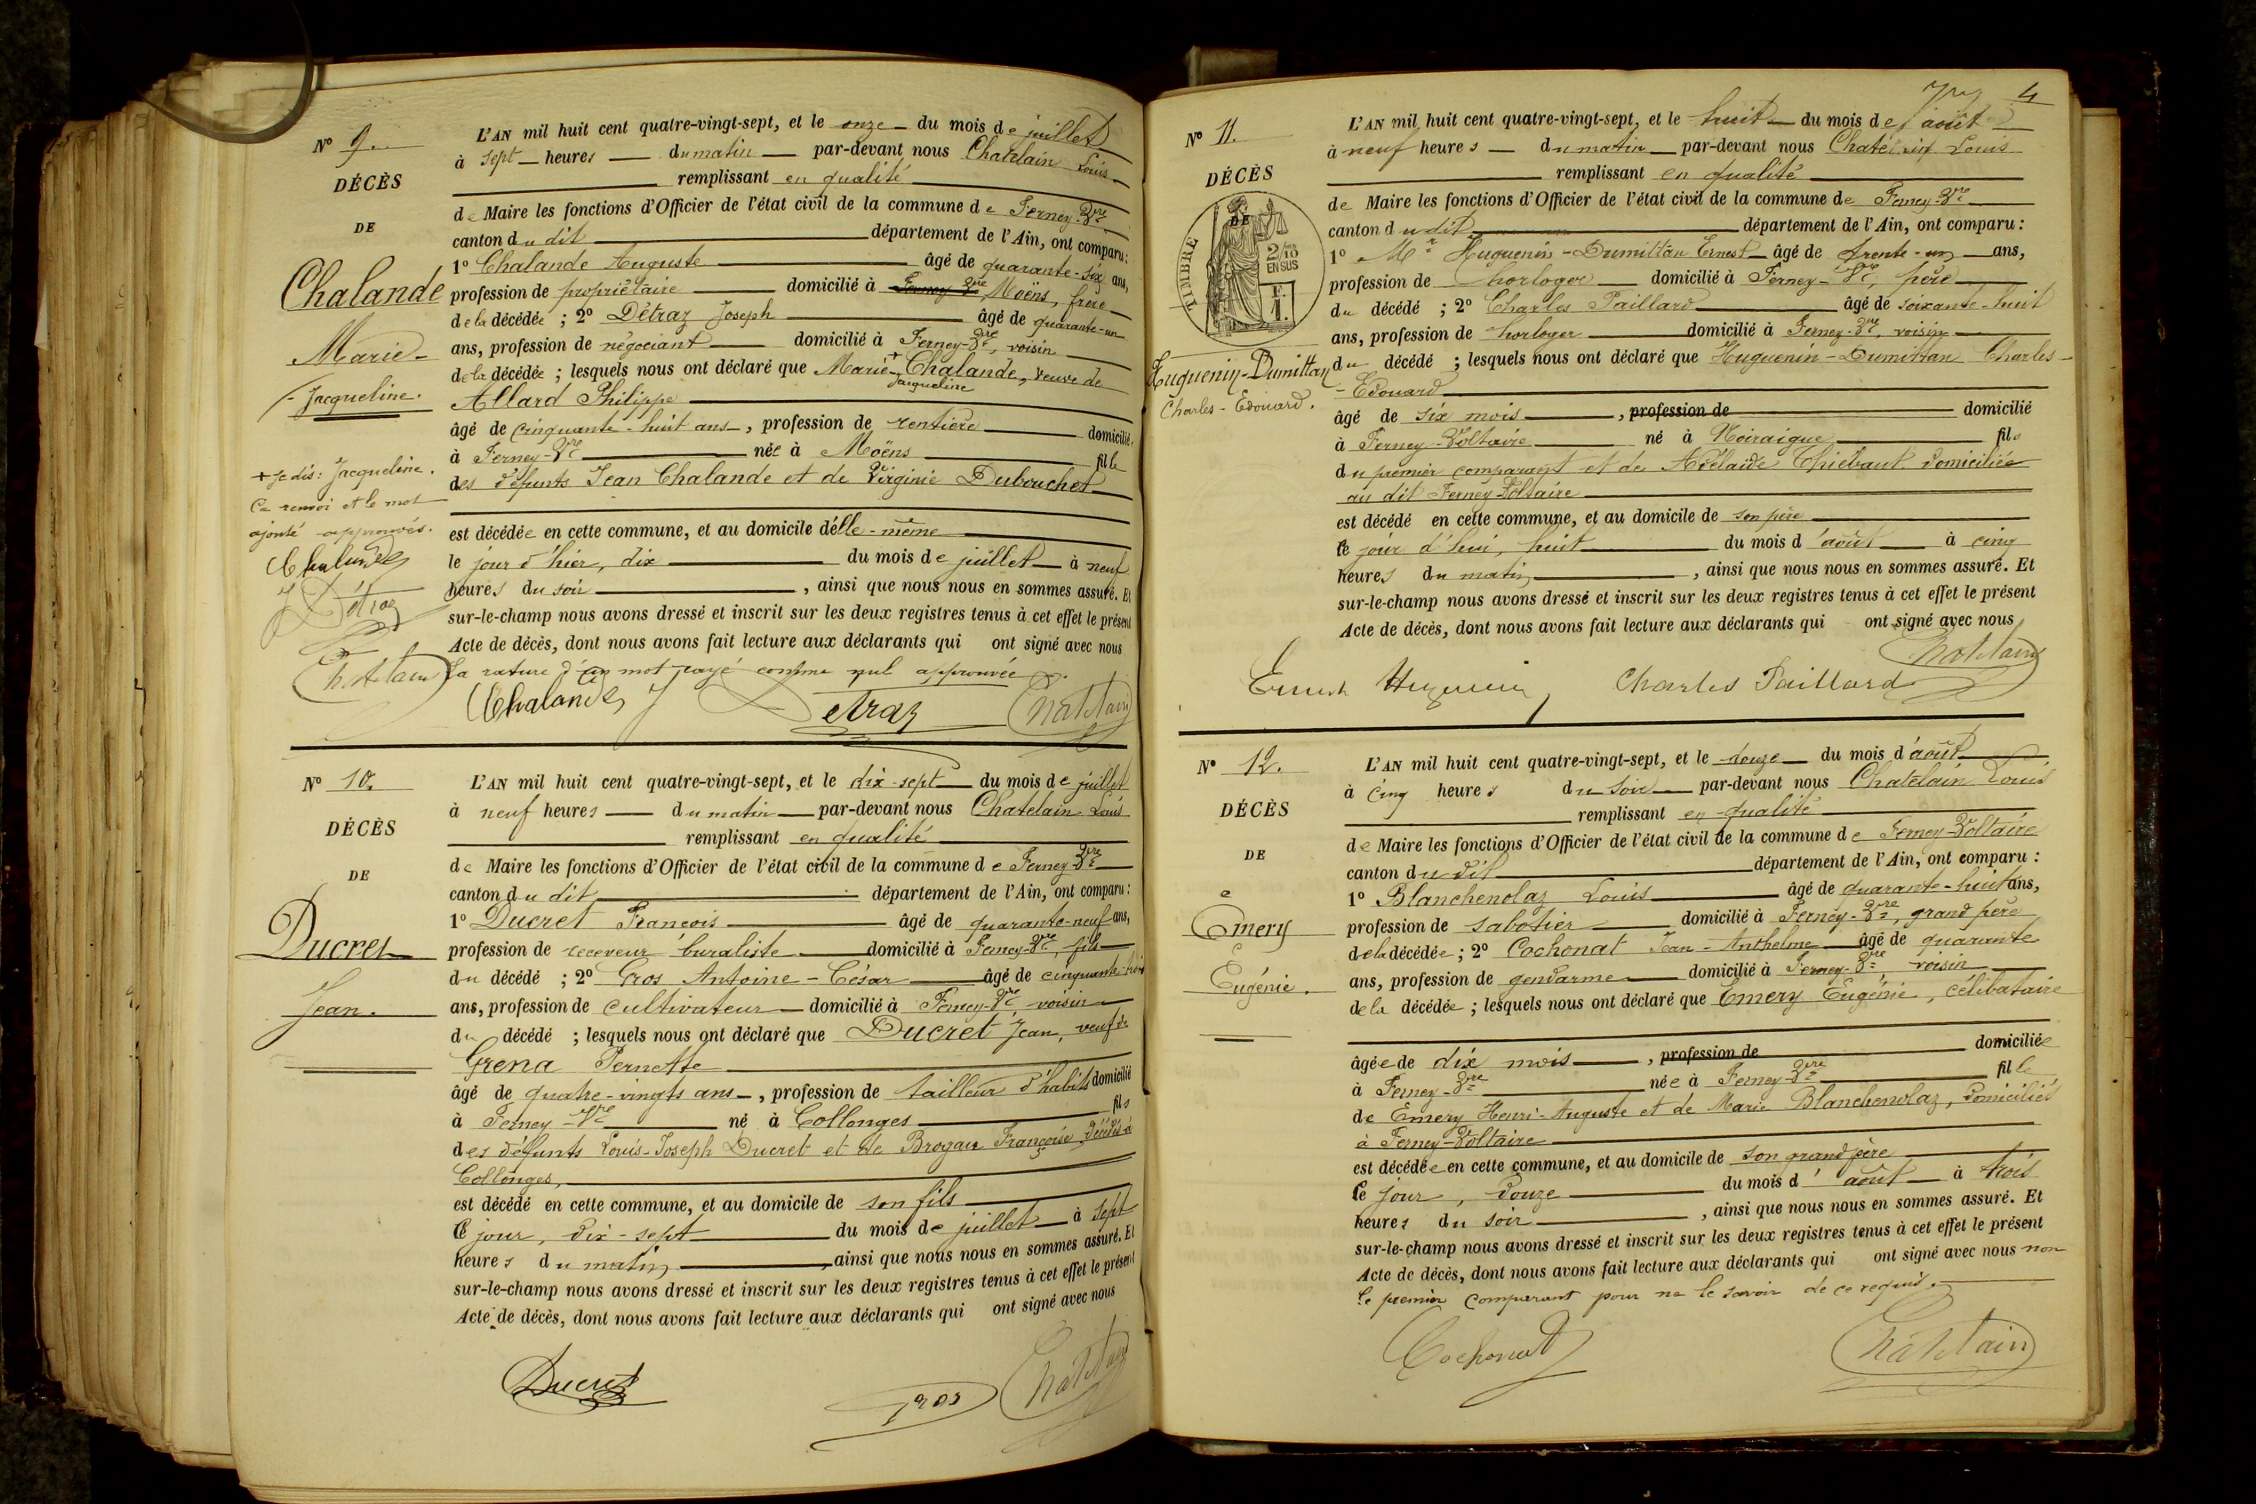 N° 9.
DÉCÈS
DE
Chalande
Marie-
-Jacqueline.
+ Je dis: Jacqueline.
Ce renvoi et le mot
ajouté approuvés.
Chalande
J Détraz
Chatelain
L'AN mil huit cent quatre-vingt-sept, et le onze du mois de juillet
à sept heures du matin par-devant nous Chatelain Louis
remplissant en qualité
de Maire les fonctions d'Officier de l'état civil de la commune de Ferney-Vre
canton du dit département de l'Ain, ont comparu :
1° Chalande Auguste âgé de quarante-six ans,
profession de propriétaire domicilié à Ferney Vre Moëns, frère
de la décédée ; 2° Détraz Joseph âgé de quarante-un
ans, profession de négociant domicilié à Ferney-Vre, voisin
de la décédée ; lesquels nous ont déclaré que Marie + Chalande, veuve de
Jacqueline
Allard Philippe
âgé de cinquante-huit ans, profession de rentière domicilié
à Ferney-Vre née à Moëns fille
des défunts Jean Chalande et de Virginie Dubouchet
est décédée en cette commune, et au domicile d'elle-même
le jour d'hier, dix du mois de juillet à neuf
heures du soir, ainsi que nous nous en sommes assuré. Et
sur-le-champ nous avons dressé et inscrit sur les deux registres tenus à cet effet le présent
Acte de décès, dont nous avons fait lecture aux déclarants qui ont signé avec nous
La rature d'un mot rayé comme nul approuvée.
Chalande J Detraz Chatelain
N° 10.
DÉCÈS
DE
Ducret
Jean.
L'AN mil huit cent quatre-vingt-sept, et le dix-sept du mois de juillet
à neuf heures du matin par-devant nous Chatelain Louis
remplissant en qualité
de Maire les fonctions d'Officier de l'état civil de la commune de Ferney-Vre
canton du dit département de l'Ain, ont comparu :
1° Ducret François âgé de quarante-neuf ans,
profession de receveur buraliste domicilié à Ferney-Vre, fils
du décédé ; 2° Gros Antoine-César âgé de cinquante-trois
ans, profession de cultivateur domicilié à Ferney-Vre voisin
du décédé ; lesquels nous ont déclaré que Ducret Jean, veuf de
Grena Pernette
âgé de quatre-vingts ans, profession de tailleur d'habits domicilié
à Ferney-Vre né à Collonges fils
des défunts Louis-Joseph Ducret et de Françoise, décédés à
Collonges,
est décédé en cette commune, et au domicile de son fils
ce jour, dix-sept du mois de juillet à sept
heures du matin, ainsi que nous nous en sommes assuré. Et
sur-le-champ nous avons dressé et inscrit sur les deux registres tenus à cet effet le présent
Acte de décès, dont nous avons fait lecture aux déclarants qui ont signé avec nous
Ducret Gros Chatelain
4
N° 11.
DÉCÈS
DE
TIMBRE
2/10
EN SUS
F.
1.
Huguenin-Dumittan
Charles-Edouard.
L'AN mil huit cent quatre-vingt-sept, et le huit du mois de août
à neuf heures du matin par-devant nous Chatelain Louis
remplissant en qualité
de Maire les fonctions d'Officier de l'état civil de la commune de Ferney-Vre
canton du dit département de l'Ain, ont comparu :
1° Mr Huguenin-Dumittan Ernest âgé de trente-un ans,
profession de horloger domicilié à Ferney-Vre, père
du décédé ; 2° Charles Paillard âgé de soixante-huit
ans, profession de horloger domicilié à Ferney-Vre, voisin
du décédé ; lesquels nous ont déclaré que Huguenin-Dumittan Charles-
-Edouard
âgé de six mois, profession de domicilié
à Ferney-Voltaire né à Noiraigue fils
du premier comparant et de Adélaïde Thiébaut domiciliée
au dit Ferney-Voltaire
est décédé en cette commune, et au domicile de son père
le jour d'hui, huit du mois d'août à cinq
heures du matin, ainsi que nous nous en sommes assuré. Et
sur-le-champ nous avons dressé et inscrit sur les deux registres tenus à cet effet le présent
Acte de décès, dont nous avons fait lecture aux déclarants qui ont signé avec nous
Chatelain
Ernest Huguenin Charles Paillard
N° 12.
DÉCÈS
DE
Emery
Eugénie.
L'AN mil huit cent quatre-vingt-sept, et le douze du mois d'août
à cinq heures du soir par-devant nous Chatelain Louis
remplissant en qualité
de Maire les fonctions d'Officier de l'état civil de la commune de Ferney-Voltaire
canton du dit département de l'Ain, ont comparu :
1° Blanchenolaz Louis âgé de quarante-huit ans,
profession de sabotier domicilié à Ferney-Vre, grand père
de la décédée ; 2° Cochonat Jean-Anthelme âgé de quarante
ans, profession de gendarme domicilié à Ferney-Vre, voisin
de la décédée ; lesquels nous ont déclaré que Emery Eugénie, célibataire
âgée de dix mois, profession de domiciliée
à Ferney-Vre née à Ferney-Vre fille
de Emery Henri-Auguste et de Marie Blanchenolaz, domiciliés
à Ferney-Voltaire
est décédée en cette commune, et au domicile de son grand père
ce jour, douze du mois d'août à trois
heures du soir, ainsi que nous nous en sommes assuré. Et
sur-le-champ nous avons dressé et inscrit sur les deux registres tenus à cet effet le présent
Acte de décès, dont nous avons fait lecture aux déclarants qui ont signé avec nous non
le premier comparant pour ne le savoir de ce requis.
Cochonat Chatelain